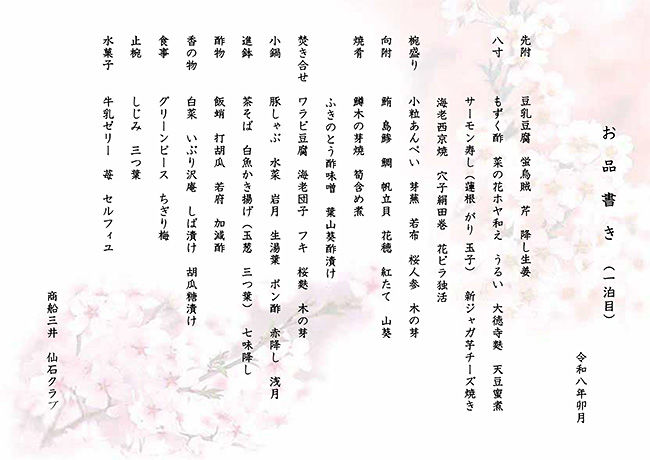 お品書き（一泊目）
令和八年卯月
先附　豆乳豆腐　蛍烏賊　芹　降し生姜
八寸　もずく酢　菜の花ホヤ和え　うるい　大徳寺麩　天豆蜜煮
サーモン寿し（蓮根 がり 玉子）　新ジャガ芋チーズ焼き
海老西京焼　穴子絹田巻　花ビラ独活
椀盛り　小粒あんぺい　芽蕪　若布　桜人参　木の芽
向附　鮪　島鯵　鯛　帆立貝　花穂　紅たて　山葵
焼肴　鱒木の芽焼　筍含め煮
ふきのとう酢味噌　葉山葵酢漬け
焚き合せ　ワラビ豆腐　海老団子　フキ　桜麩　木の芽
小鍋　豚しゃぶ　水菜　岩月　生湯葉　ポン酢　赤降し　浅月
進鉢　茶そば　白魚かき揚げ（玉葱　三つ葉）　七味降し
酢物　飯蛸　打胡瓜　若府　加減酢
香の物　白菜　いぶり沢庵　しば漬け　胡瓜糖漬け
食事　グリーンピース　ちぎり梅
止椀　しじみ　三つ葉
水菓子　牛乳ゼリー　苺　セルフィユ
商船三井　仙石クラブ